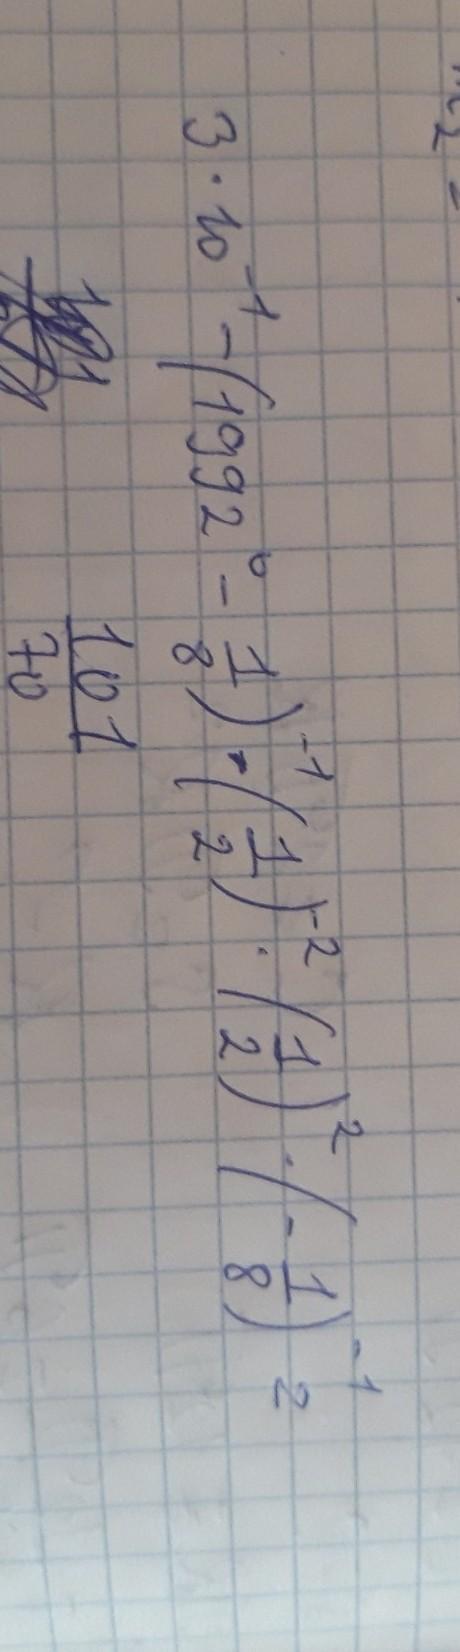 m₂ =
3 · 10⁻¹ - (1992⁰ - 1/8)⁻¹ · (1/2)⁻² · (1/2)² · (-1/8)⁻¹ 2
101/70